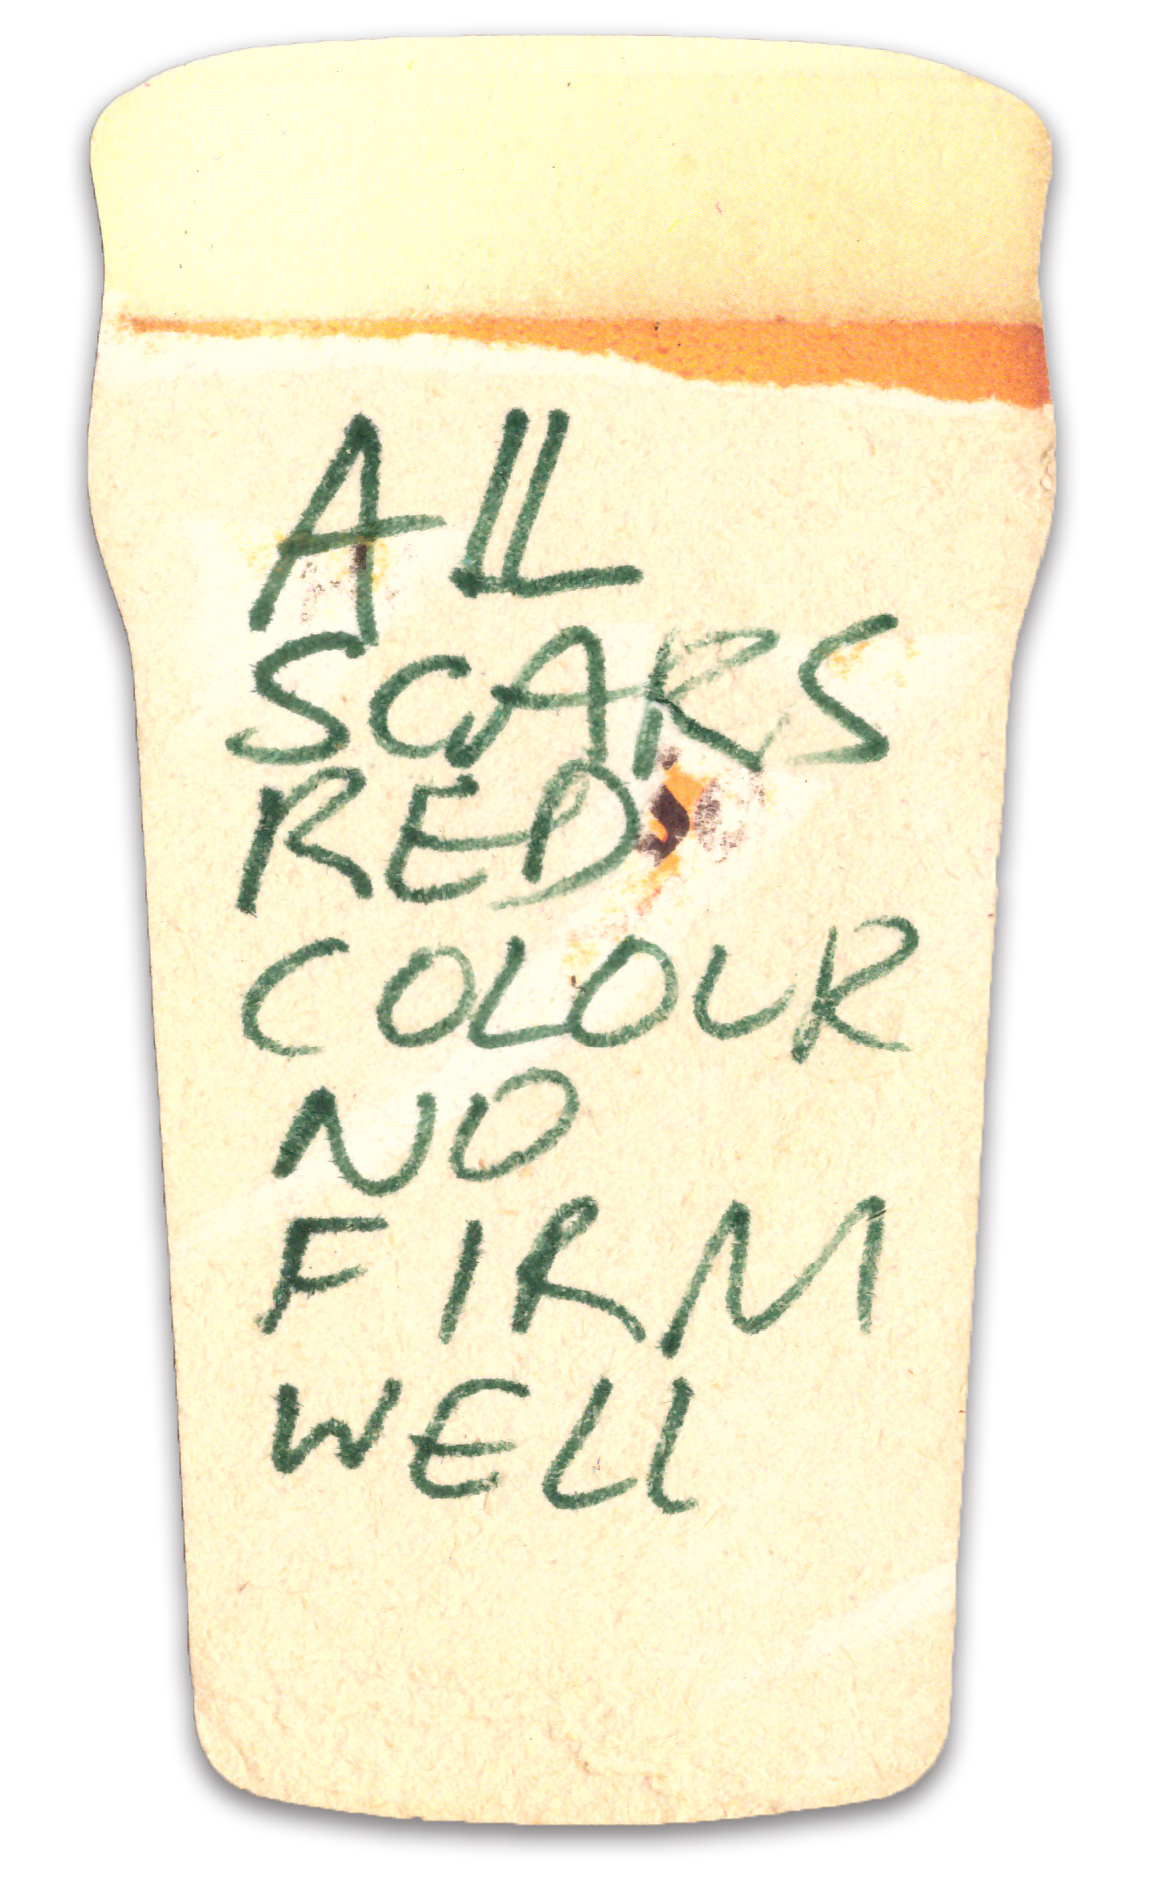 ALL
SCARS
RED
COLOUR
NO
FIRM
WELL